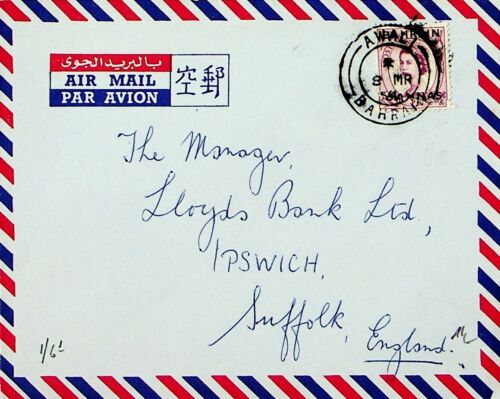 بالبريد الجوى
AIR MAIL
PAR AVION
空郵
AWALI
8 MR
BAHRAIN
BAHRAIN
The Manager,
Lloyds Bank Ltd,
IPSWICH,
Suffolk,
England.
1/6d